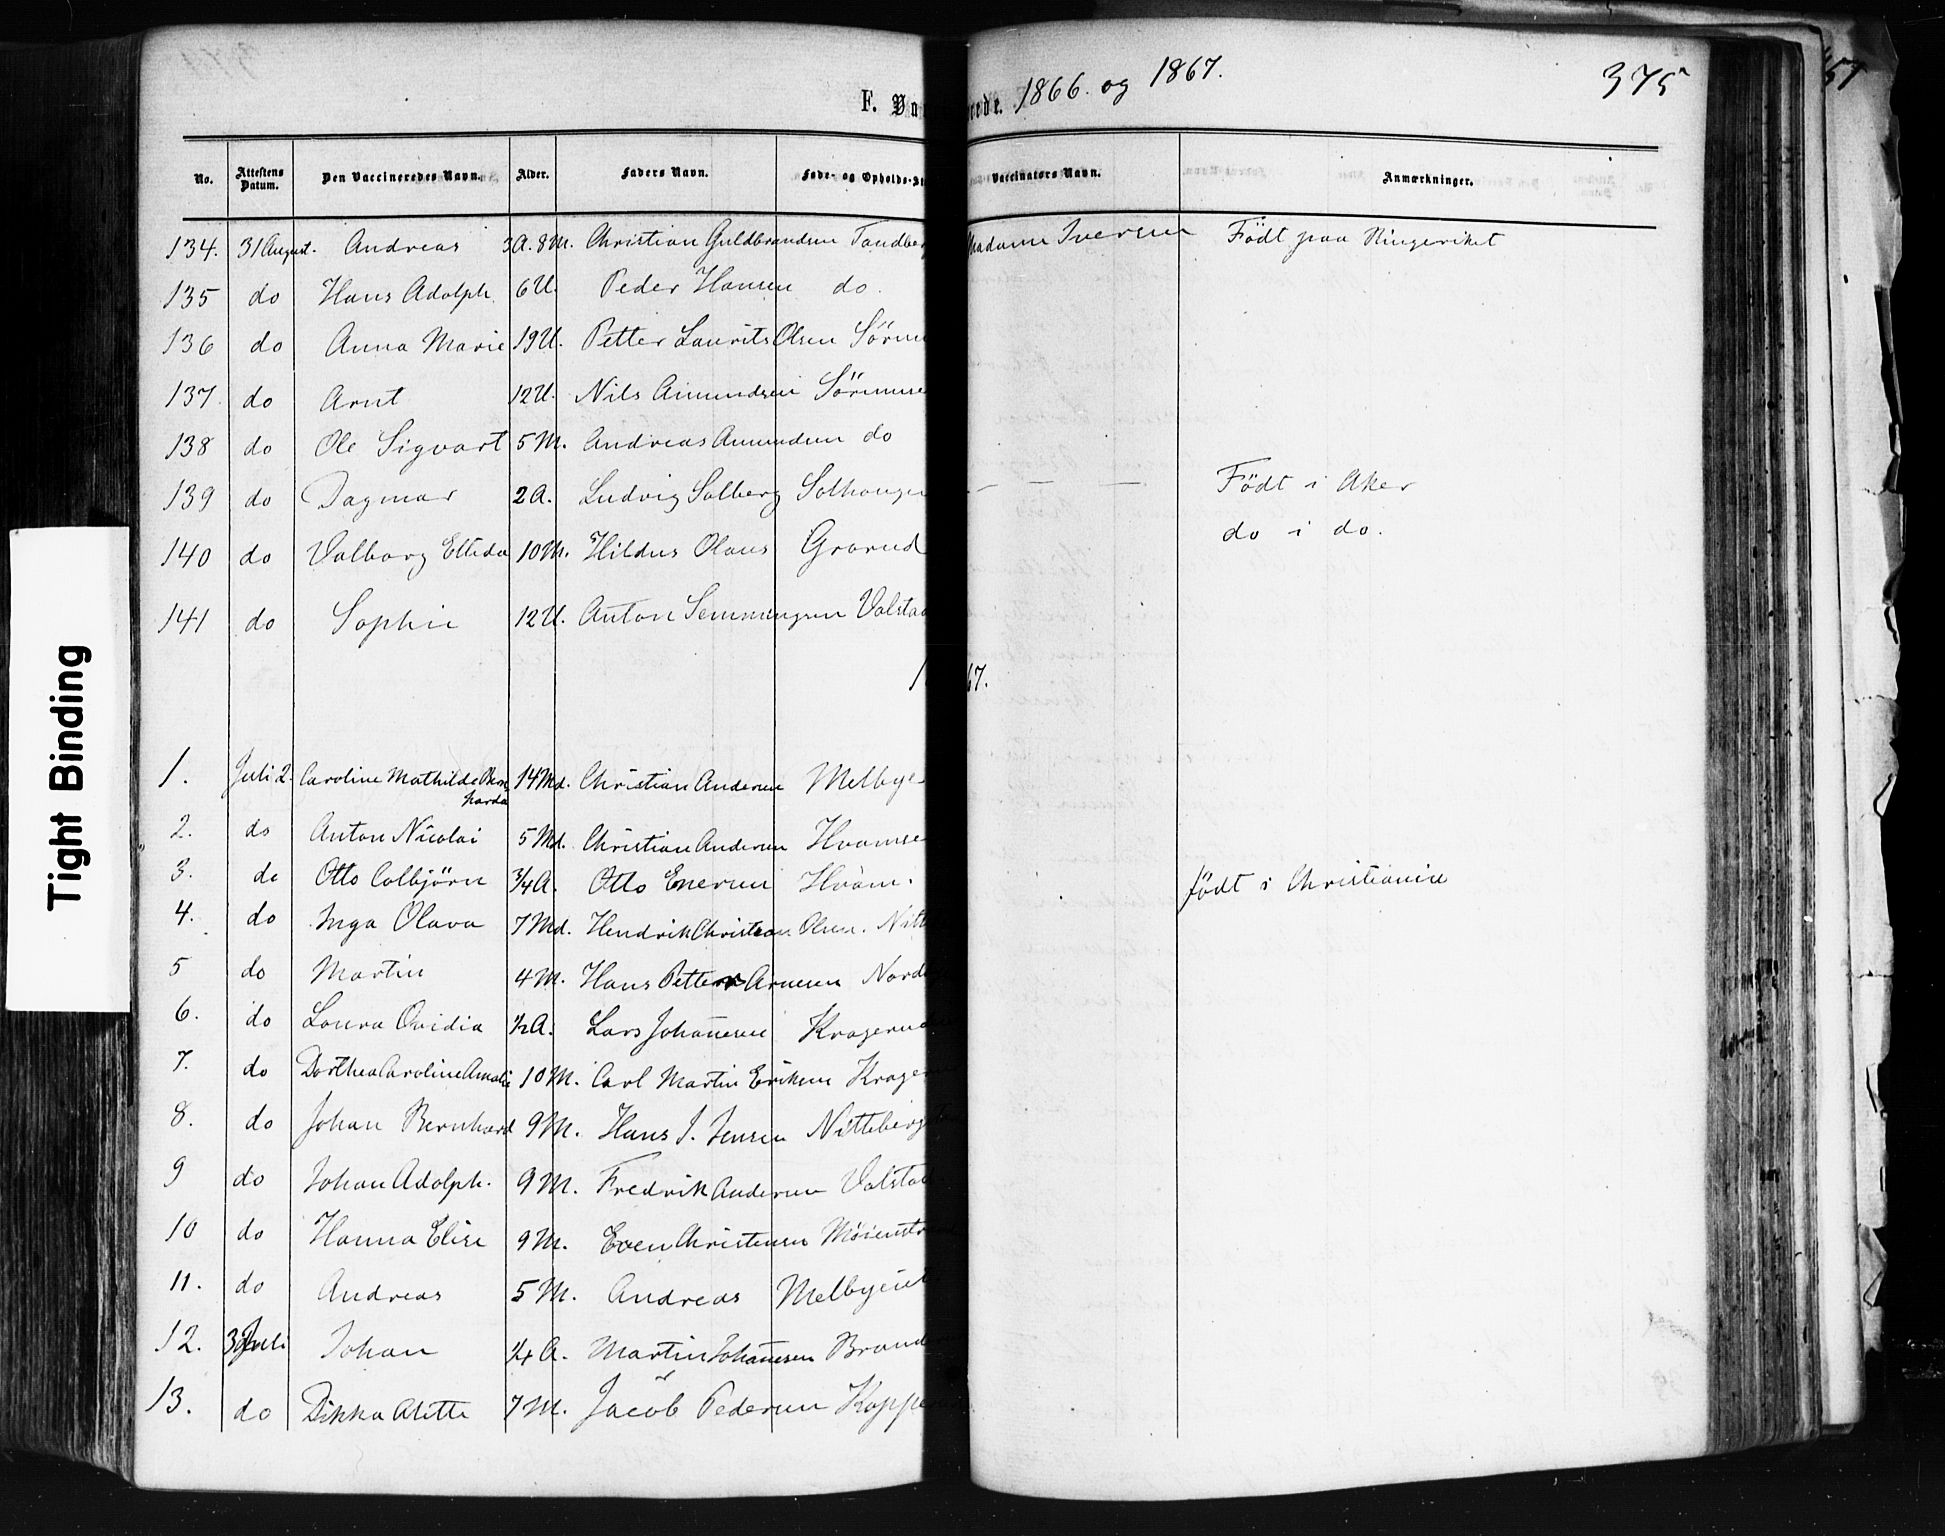 375
F. Va rede. 1866. og 1867.
No. Attestens Datum. Den Vaccineredes Navn. Alder. Faders Navn. Føde- og Opholds-St Vaccinators Navn. Anmærkninger.
134. 31 August. Andreas 3A. 8M. Christian Guldbrandsen Tandber Madame Iversen Födt paa Ringeriket
135 do Hans Adolph 6U. Peder Hansen do.
136 do Anna Marie 19U. Petter Laurits Olsen Sörum
137 do Arnt 12U. Nils Amundsen Sörumse
138 do Ole Sigvart 5M. Andreas Amundsen do
139 do Dagmar 2A. Ludvig Solberg Solhaugen — — — Födt i Aker
140 do Valborg Ellida 10M. Hildus Olaus Grorud do i do.
141 do Sophie 12U. Anton Semmingsen Valstad
1 67.
1. Juli 2. Caroline Mathilde Bern-
harda 14Md. Christian Andersen Melbye
2. do Anton Nicolai 5Md. Christian Andersen Hvamse
3. do Otto Colbjörn 3/4A. Otto Enersen Hvam. födt i Christiania
4. do Inga Olava 7Md. Hendrik Christian Olsen. Nitt
5 do Martin 4M. Hans Petter Arnesen Nord
6. do Laura Ovidia 1/2A. Lars Johannesen Kragerud
7. do Dorthea Caroline Amalie 10M. Carl Martin Eriksen Krager
8. do Johan Bernhard 9M. Hans J. Jensen Nitteberg
9 do Johan Adolph. 9M. Fredrik Andersen Valstad
10 do Hanna Elise 9M. Even Christensen
11. do Andreas 5M. Andreas Melbyeie
12. 3 Juli Johan 1/4A. Martin Johannesen Brand
13. do Dikka Alette 7M. Jacob Pedersen Kopper
Tight Binding